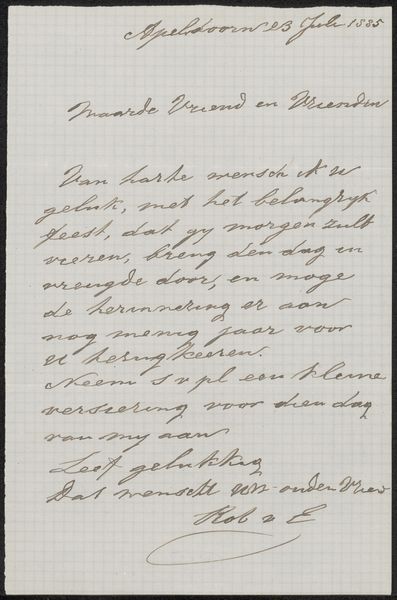 Apeldoorn 23 Juli 1885
Waarde Vriend en Vriendin
Van harte wensch ik u
geluk, met het belangryk
feest, dat gy morgen zult
vieren, breng den dag in
vreugde door, en moge
de herinnering er aan
nog menig jaar voor
U terugkeeren.
Neem s v pl een kleine
versiering voor dien dag
van my aan
Leef gelukkig
Dat wenscht uw ouden Vriend
Rob v E